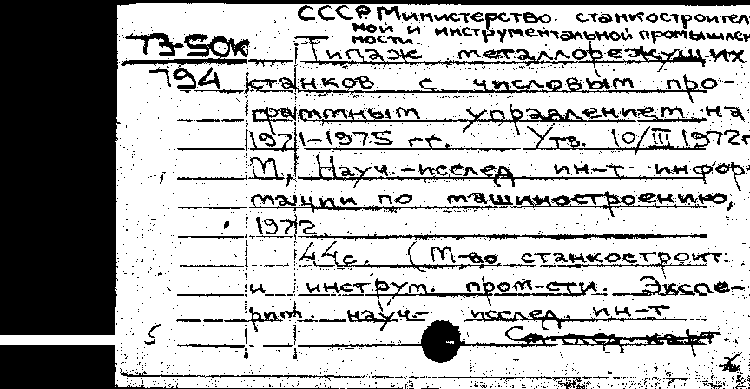 СССР. Министерство станкостроител
ной и инструментальной промышлен
ности.
ТЗ-50к Типаж металлорежущих
794 станков с числовым про-
граммным управлением на
1971-1975 гг. Утв. 10/III 1972г
М., Науч.-исслед ин-т инфор-
мации по машиностроению,
1972
44с. (М-во станкостроит.
и инструм. пром-сти. Экспе-
рим. науч.- исслед. ин-т
5 См. след. карт